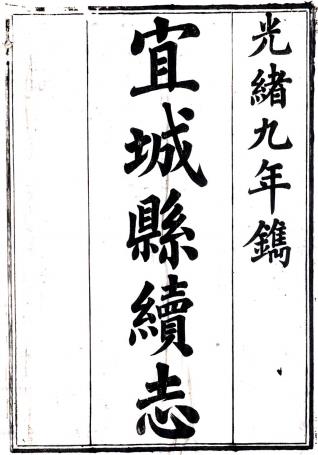 光緒九年鐫
宜城縣續志